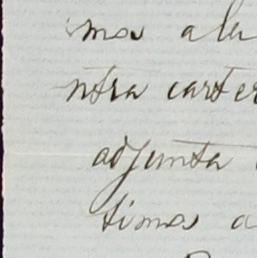 mos a la
ntra carter
adjunta
timos a